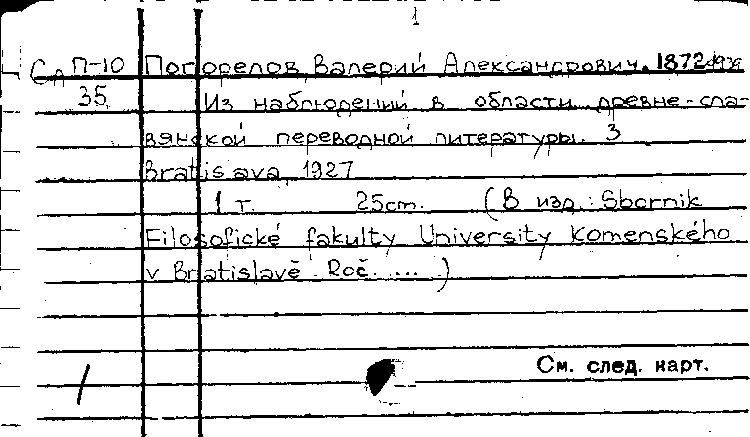 1
Сл П-10 Погорелов, Валерий Александрович, 1872-
35 Из наблюдений в области древне-сла-
вянской переводной литературы. 3
Bratislava, 1927
1 т. 25cm. (В изд.: Sborník
Filosofické fakulty University Komenského
v Bratislavě. Roč. ....)
См. след. карт.